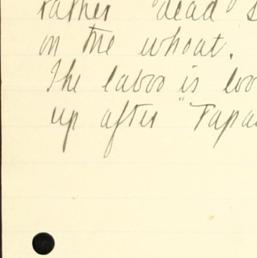 rather "dead s
on the whoat.
The labor is loo
up after "Papa